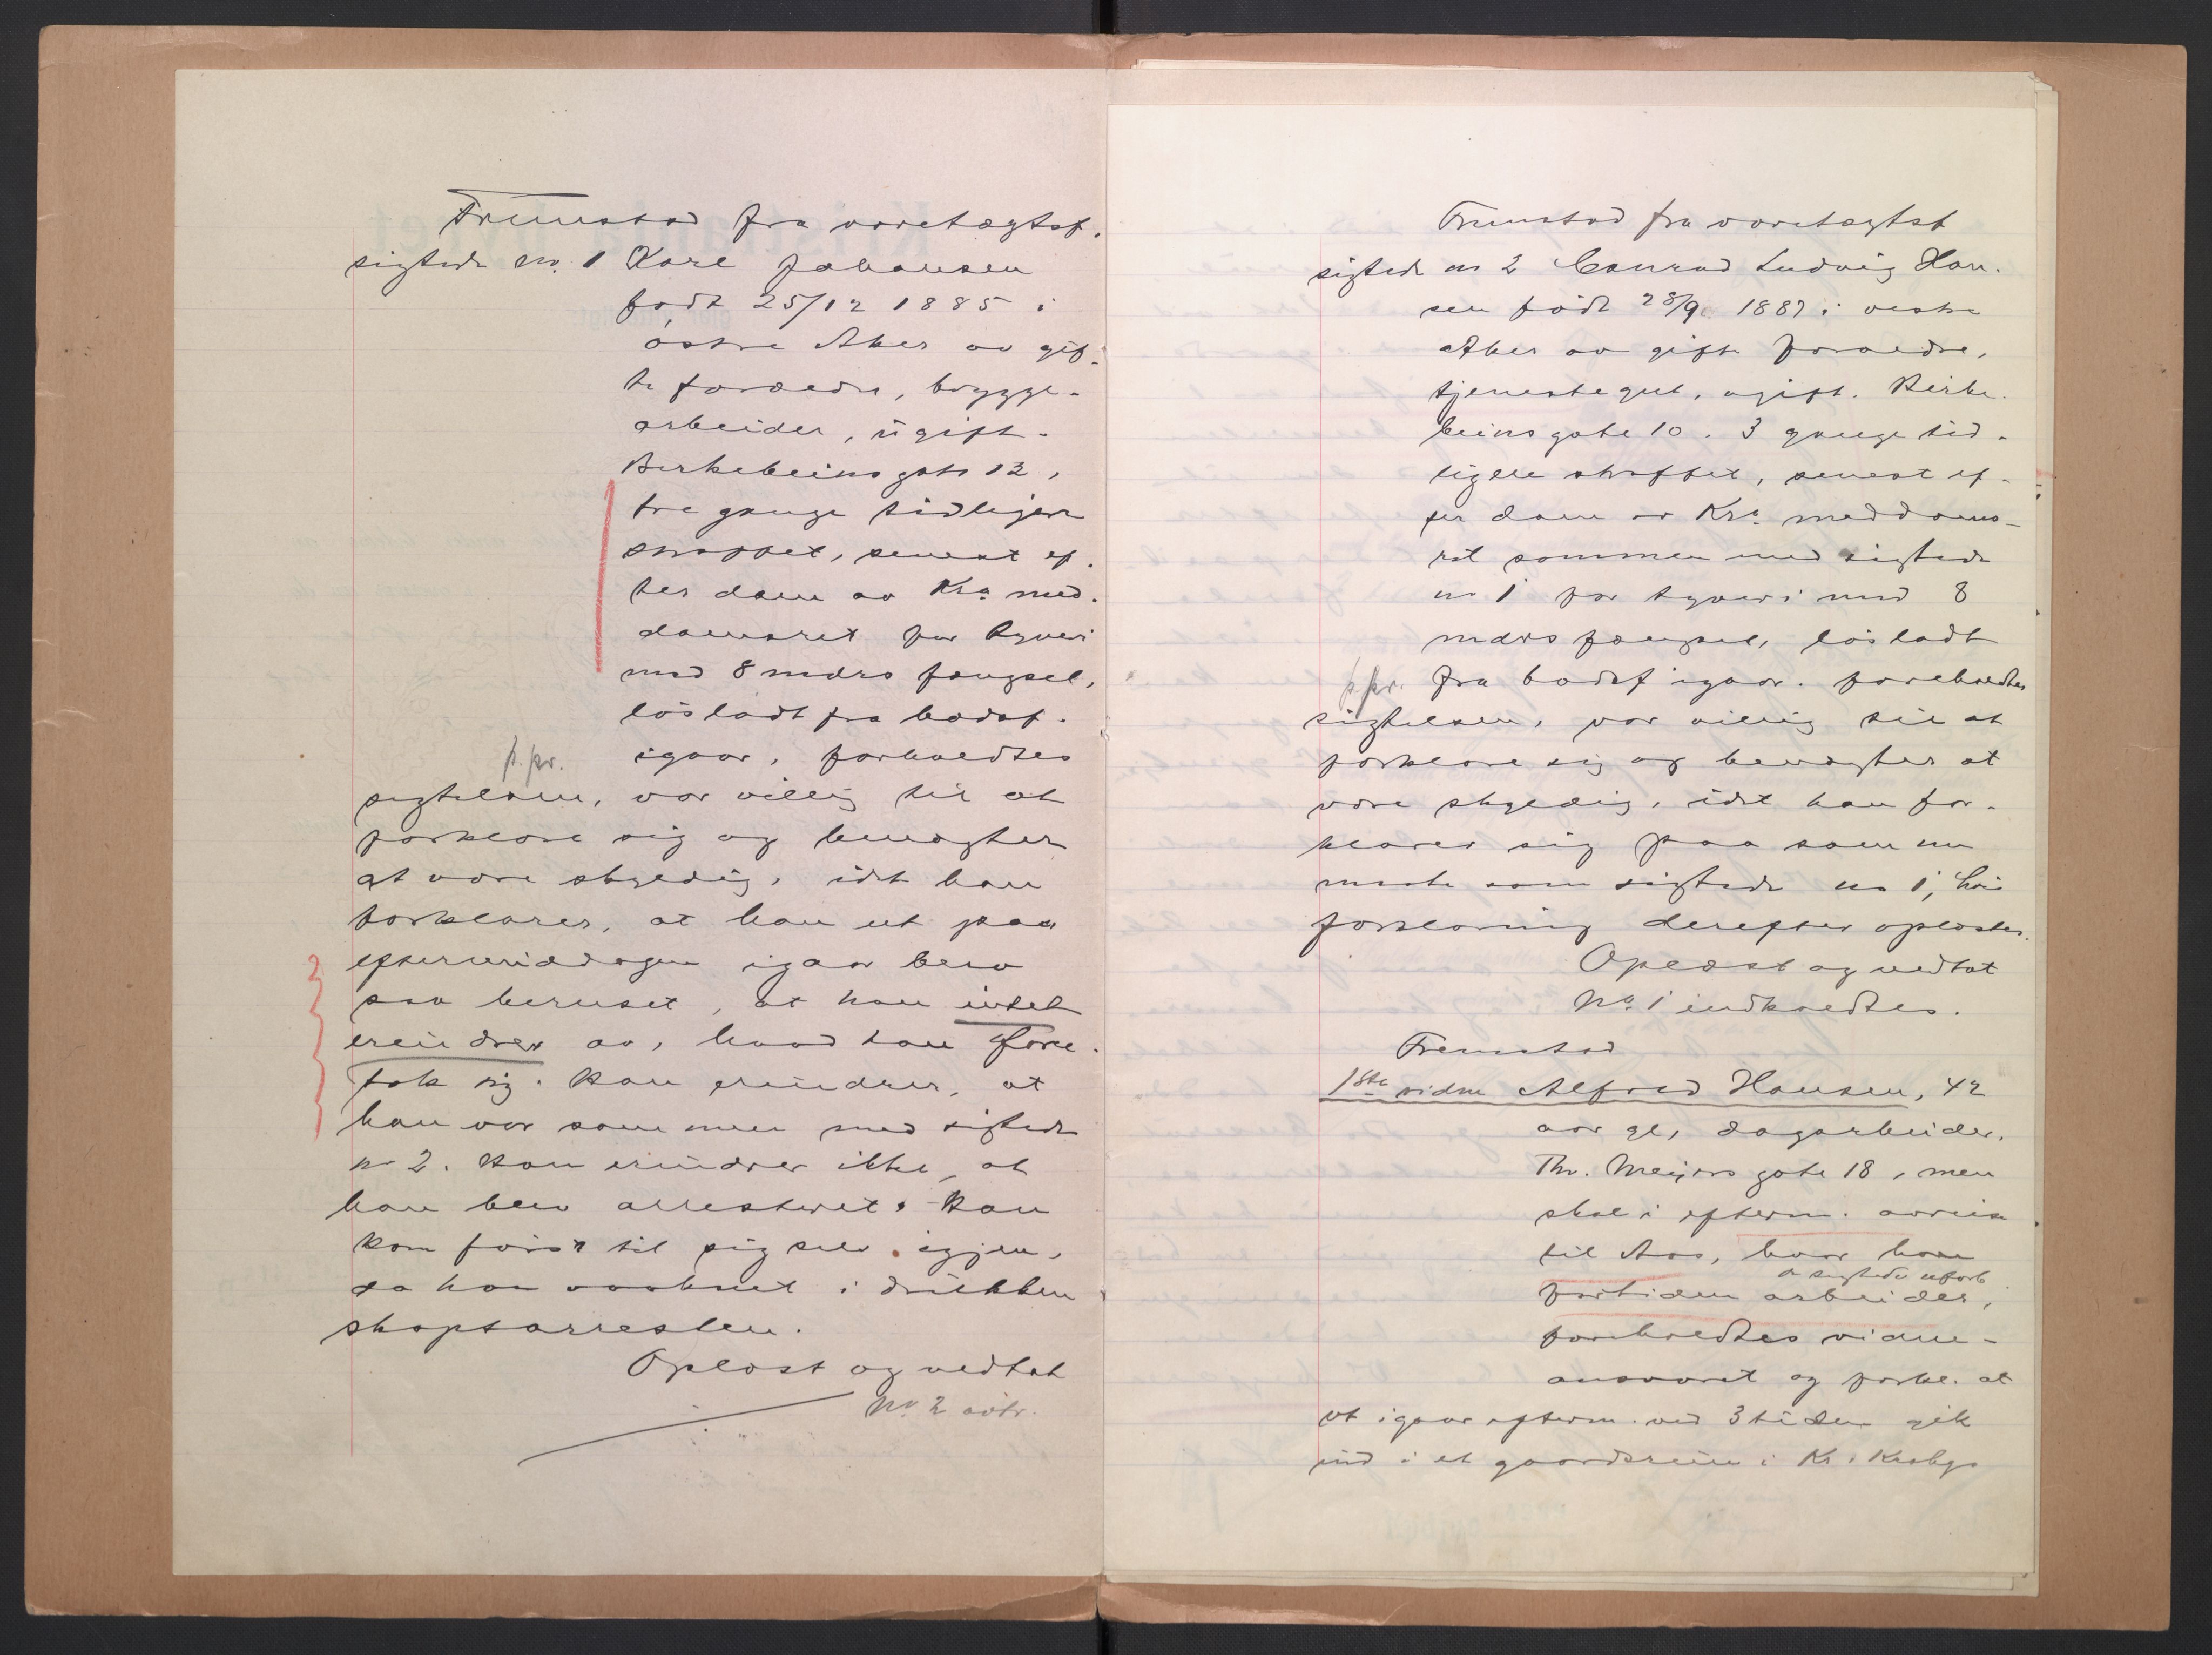 Fremstod fra varetægtsf.
sigtede no. 1 Karl Johansen
født 25/12 1885 i
østre Aker av gif-
te forældre, brygge-
arbeider, ugift.
Birkebeinsgate 12,
tre gange tidligere
straffet, senest ef-
ter dom av Kra med-
domsret for tyveri
med 8 mdrs fængsel,
løsladt fra bodsf.
p. pr. igaar, forholdtes
sigtelsen, var villig til at
forklare sig og benegter
at være skyldig, idet han
forklarer, at han ut paa
eftermiddagen igaar blev
saa beruset, at han intet
erindrer av, hvad han fore-
tok sig. Han erindrer, at
han var sammen med sigtede
no 2. Han erindrer ikke, at
han blev arrestert. Han
kom først til sig selv igjen,
da han vaaknet i drukken
skapsarresten.
Oplæst og vedtat
No. 2 avtr.
Fremstod fra varetægtsf
sigtede no 2 Conrad Ludvig Han-
sen født 28/9 1887 i vestre
Aker av gifte forældre,
tjenestegut, ugift. Birke-
beinsgate 10. 3 gange tid-
ligere straffet, senest ef-
ter dom av Kra meddoms-
ret sammen med sigtede
no 1 for tyveri med 8
mdrs fængsel, løsladt
p. pr. fra bodsf igaar. foreholdtes
sigtelsen, var villig til at
forklare sig og benegter at
være skyldig, idet han for-
klarer sig paa samme
maate som sigtede no 1, hvis
forklaring derefter oplæstes.
Oplæst og vedtat
No. 1 indkaldtes.
Fremstod
1ste vidne Alfred Hansen, 42
aar gl, dagarbeider,
Thv. Meyers gate 18, men
skal i efterm. avreise
til Aas, hvor han
a sigtede uforb
fortiden arbeider,
foreholdtes vidne-
ansvaret og forkl. at
vt igaar efterm. ved 3 tiden gik
ind i et gaardsrum i Kr. Krohgs